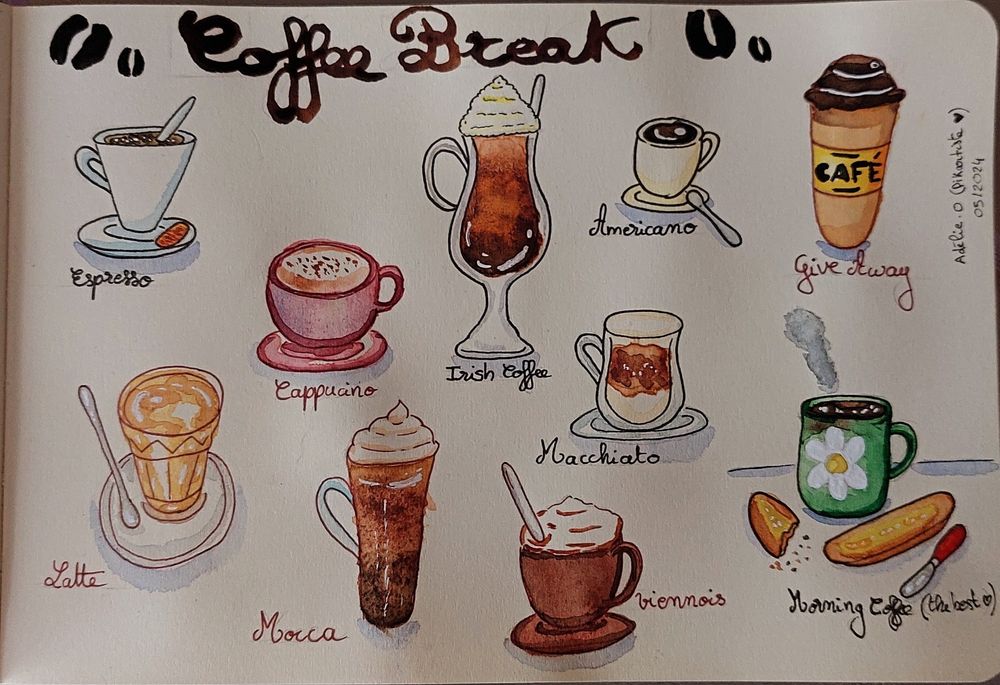 Coffee Break
Espresso
Cappucino
Irish Coffee
Americano
CAFÉ
Give Away
Adélie.O (Pikartiste ♥)
05/2024
Latte
Mocca
Macchiato
viennois
Morning Coffee (the best ♡)